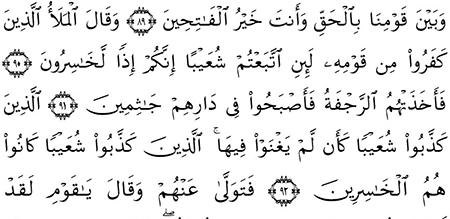 وَبَيْنَ قَوْمِنَا بِٱلْحَقِّ وَأَنتَ خَيْرُ ٱلْفَـٰتِحِينَ ﴿٨٩﴾ وَقَالَ ٱلْمَلَأُ ٱلَّذِينَ
كَفَرُوا۟ مِن قَوْمِهِۦ لَئِنِ ٱتَّبَعْتُمْ شُعَيْبًا إِنَّكُمْ إِذًا لَّخَـٰسِرُونَ ﴿٩٠﴾
فَأَخَذَتْهُمُ ٱلرَّجْفَةُ فَأَصْبَحُوا۟ فِى دَارِهِمْ جَـٰثِمِينَ ﴿٩١﴾ ٱلَّذِينَ
كَذَّبُوا۟ شُعَيْبًا كَأَن لَّمْ يَغْنَوْا۟ فِيهَا ۚ ٱلَّذِينَ كَذَّبُوا۟ شُعَيْبًا كَانُوا۟
هُمُ ٱلْخَـٰسِرِينَ ﴿٩٢﴾ فَتَوَلَّىٰ عَنْهُمْ وَقَالَ يَـٰقَوْمِ لَقَدْ